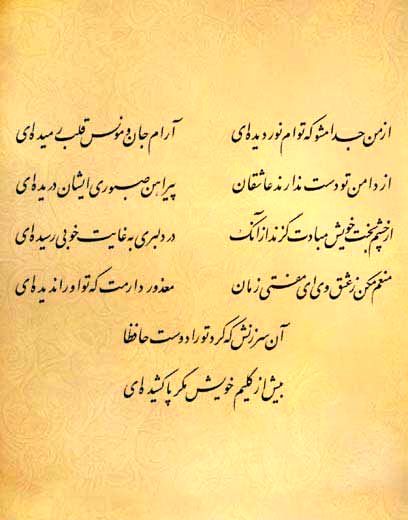 از من جدا مشو که توام نور دیده‌ای آرام جان و مونس قلب رمیده‌ای
از دامن تو دست ندارند عاشقان پیراهن صبوری ایشان دریده‌ای
از چشم بخت خویش مبادت گزند از آنک در دلبری به غایت خوبی رسیده‌ای
منعم مکن ز عشق وی ای مفتی زمان معذور دارمت که تو او را ندیده‌ای
آن سرزنش که کرد تو را دوست حافظا
بیش از گلیم خویش مگر پا کشیده‌ای